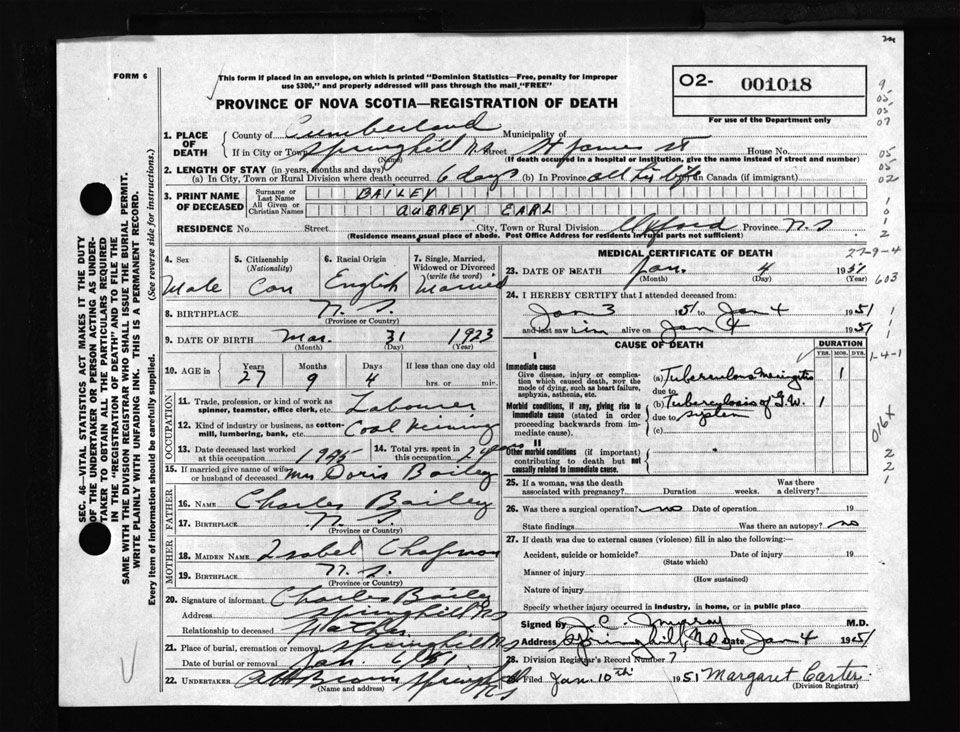 FORM 6
This form if placed in an envelope, on which is printed "Dominion Statistics—Free, penalty for improper
use $300," and properly addressed will pass through the mail "FREE"
O2- 001018
PROVINCE OF NOVA SCOTIA—REGISTRATION OF DEATH
For use of the Department only
1. PLACE OF DEATH
County of Cumberland Municipality of
If in City or Town Springhill N.S. Street St James St House No.
(Name) (If death occurred in a hospital or institution, give the name instead of street and number)
2. LENGTH OF STAY (in years, months and days)
(a) In City, Town or Rural Division where death occurred 6 days (b) In Province all his life In Canada (if immigrant)
3. PRINT NAME OF DECEASED
Surname or Last Name BAILEY
All Given or Christian Names AUBREY EARL
RESIDENCE No. Street City, Town or Rural Division Oxford Province N.S
(Residence means usual place of abode. Post Office Address for residents in rural parts not sufficient)
4. Sex Male
5. Citizenship (Nationality) Can
6. Racial Origin English
7. Single, Married, Widowed or Divorced (write the word) Married
8. BIRTHPLACE N.S.
(Province or Country)
9. DATE OF BIRTH Mar. 31 1923
(Month) (Day) (Year)
10. AGE in Years 27 Months 9 Days 4 If less than one day old hrs. or min.
OCCUPATION
11. Trade, profession or kind of work as spinner, teamster, office clerk, etc. Labourer
12. Kind of industry or business, as cotton-mill, lumbering, bank, etc. Coal Mining
13. Date deceased last worked at this occupation 1945
14. Total yrs. spent in this occupation 2 years
15. If married give name of wife or husband of deceased Mrs Doris Bailey
FATHER
16. Name Charles Bailey
17. Birthplace N.S.
(Province or Country)
MOTHER
18. Maiden Name Isabel Chapman
19. Birthplace N.S.
(Province or Country)
20. Signature of informant Charles Bailey
Address Springhill NS
Relationship to deceased Father
21. Place of burial, cremation or removal Springhill NS
Date of burial or removal Jan. 6/51
22. Undertaker Brown Springhill NS
(Name and address)
MEDICAL CERTIFICATE OF DEATH
23. DATE OF DEATH Jan. 4 1951
(Month) (Day) (Year)
24. I HEREBY CERTIFY that I attended deceased from:
Jan 3 1951 to Jan 4 1951
and last saw him alive on Jan 4 1951
CAUSE OF DEATH
DURATION
YRS. MOS. DYS.
I
Immediate cause
Give disease, injury or complication which caused death, NOT the mode of dying, such as heart failure, asphyxia, asthenia, etc.
(a) Tuberculous Meningitis 1
due to
Morbid conditions, if any, giving rise to immediate cause (stated in order proceeding backwards from immediate cause).
(b) Tuberculosis of G.U. 1
due to system
(c)
II
Other morbid conditions (if important) contributing to death but not causally related to immediate cause.
25. If a woman, was the death associated with pregnancy? Duration weeks. Was there a delivery?
26. Was there a surgical operation? no Date of operation 19
State findings Was there an autopsy? no
27. If death was due to external causes (violence) fill in also the following:
Accident, suicide or homicide? Date of injury 19
(State which)
Manner of injury
(How sustained)
Nature of injury
Specify whether injury occurred in industry, in home, or in public place
Signed by J. C. Murray M.D.
Address Springhill, N.S Date Jan 4 1951
28. Division Registrar's Record Number 7
Filed Jan. 10th 1951 Margaret Carter
(Division Registrar)
SEC. 46—VITAL STATISTICS ACT MAKES IT THE DUTY
OF THE UNDERTAKER OR PERSON ACTING AS UNDER-
TAKER TO OBTAIN ALL THE PARTICULARS REQUIRED
IN THE "REGISTRATION OF DEATH" AND TO FILE THE
SAME WITH THE DIVISION REGISTRAR WHO SHALL ISSUE THE BURIAL PERMIT.
WRITE PLAINLY WITH UNFADING INK. THIS IS A PERMANENT RECORD.
Every item of information should be carefully supplied. (See reverse side for instructions.)
9
05
07
05
05
02
1
0
1
2
27-9-4
603
1
1
1
1-4-1
016x
2
2
1